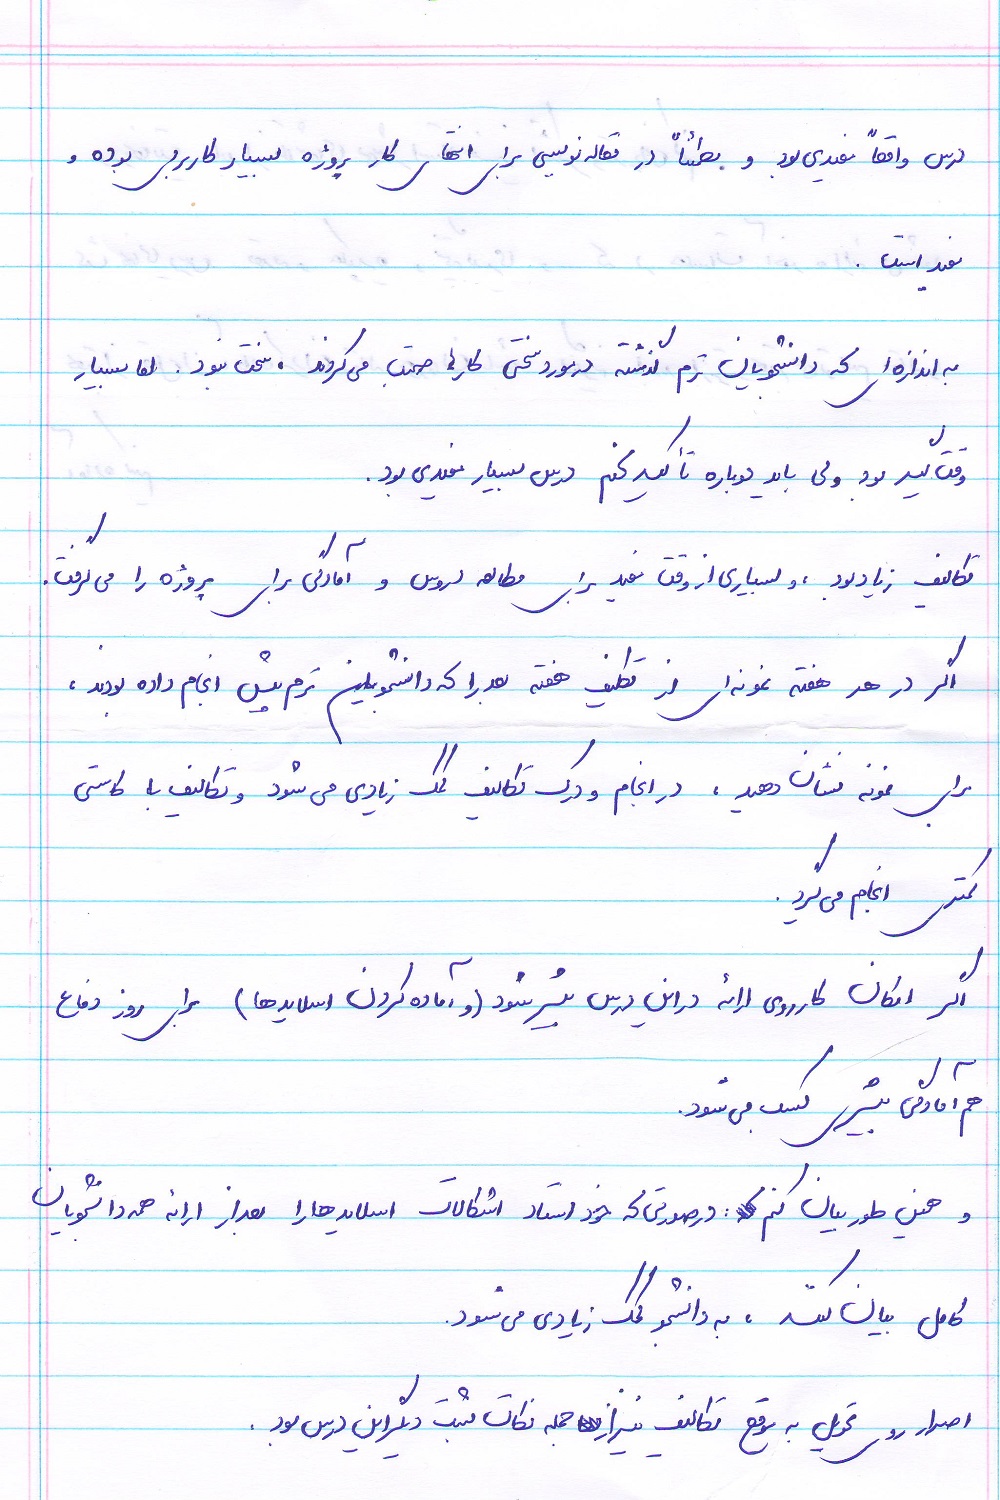 درس واقعاً مفیدی بود و مطمئناً در مقاله نویسی برای انتهای کار پروژه بسیار کاربردی بوده و
مفید است .
به اندازه‌ای که دانشجویان ترم گذشته درمورد سختی کارها صحبت می‌کردند ، سخت نبود . اما بسیار
وقت گیر بود ولی باید دوباره تأکید کنم درس بسیار مفیدی بود .
تکالیف زیاد بود ، و بسیاری از وقت مفید برای مطالعه دروس و آمادگی برای پروژه را می گرفت .
اگر در هر هفته نمونه‌ای از تکلیف هفته بعد را که دانشجویان ترم پیش انجام داده بودند ،
برای نمونه نشان دهید ، در انجام و درک تکالیف کمک زیادی می شود و تکالیف با کاستی
کمتری انجام می گیرد .
اگر امکان کار روی ارائه در این درس بیشتر شود (و آماده کردن اسلایدها) برای روز دفاع
هم آمادگی بیشتری کسب می شود .
و همین طور بیان کنم : درصورتی که خود استاد اشکالات اسلایدها را بعد از ارائه همه دانشجویان
کامل بیان کنند ، به دانشجو کمک زیادی می شود .
اصرار روی تحویل به موقع تکالیف نیز از جمله نکات مثبت دیگر این درس بود .